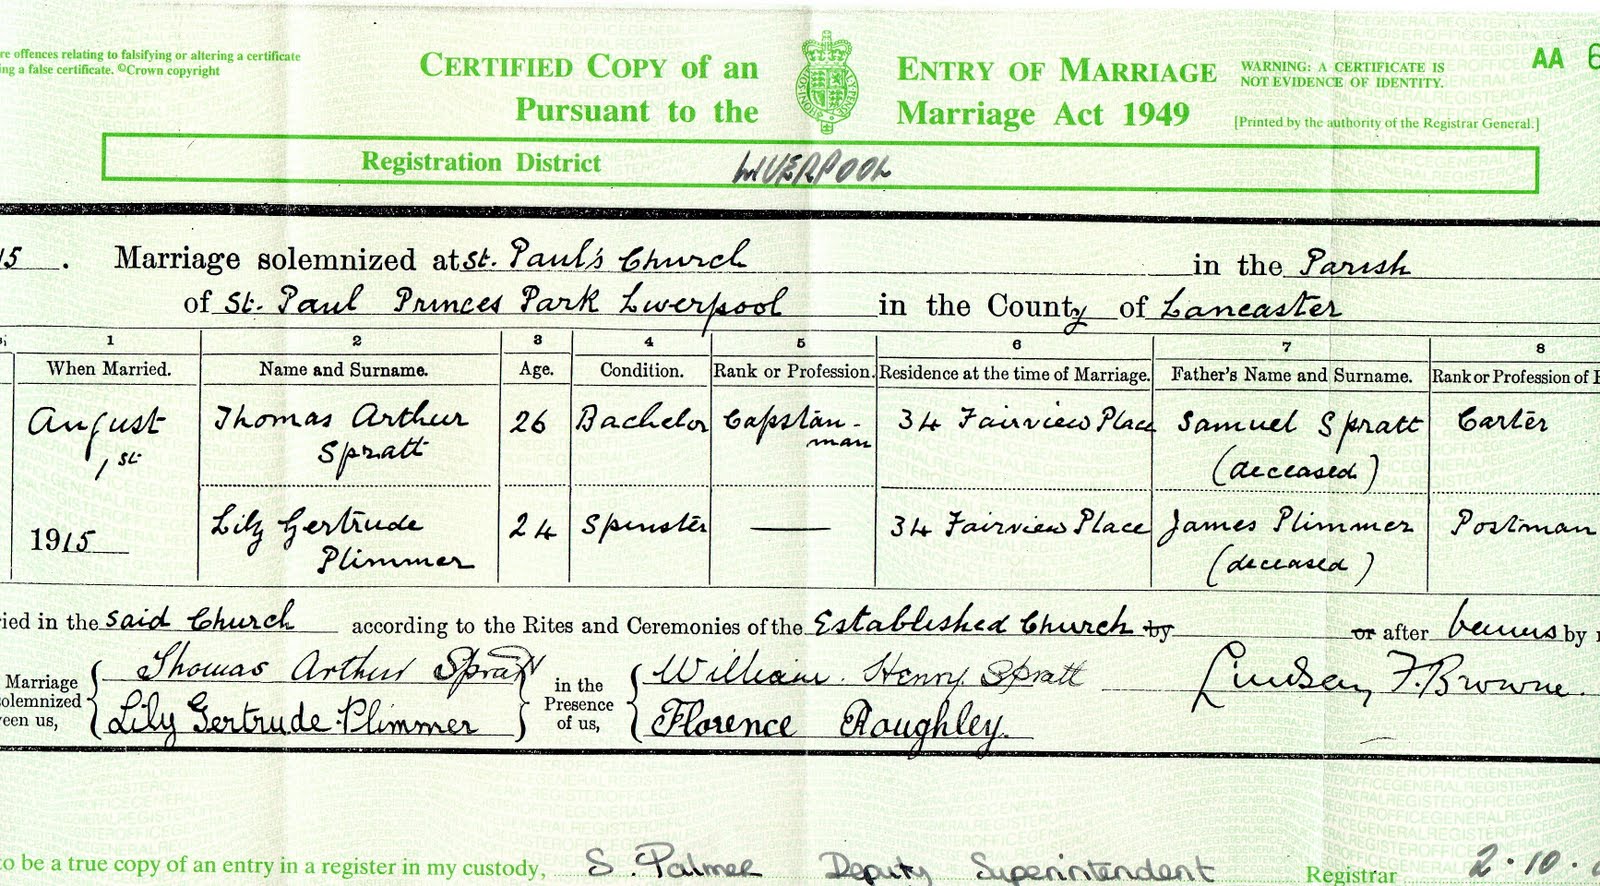 re offences relating to falsifying or altering a certificate
ng a false certificate. ©Crown copyright
CERTIFIED COPY of an ENTRY OF MARRIAGE
Pursuant to the Marriage Act 1949
WARNING: A CERTIFICATE IS
NOT EVIDENCE OF IDENTITY.
AA 6
[Printed by the authority of the Registrar General.]
Registration District LIVERPOOL
15. Marriage solemnized at St. Paul's Church in the Parish
of St. Paul Princes Park Liverpool in the County of Lancaster
1 2 3 4 5 6 7 8
When Married. Name and Surname. Age. Condition. Rank or Profession. Residence at the time of Marriage. Father's Name and Surname. Rank or Profession of F
August Thomas Arthur 26 Bachelor Capstan- 34 Fairview Place Samuel Spratt Carter
1st Spratt man (deceased)
1915 Lily Gertrude 24 Spinster — 34 Fairview Place James Plimmer Postman
Plimmer (deceased)
ried in the said Church according to the Rites and Ceremonies of the Established Church by or after banns by
Marriage Thomas Arthur Spratt in the William Henry Spratt Lindsay F. Browne.
solemnized Presence
ween us, Lily Gertrude Plimmer of us, Florence Roughley.
to be a true copy of an entry in a register in my custody, S. Palmer Deputy Superintendent Registrar 2.10.